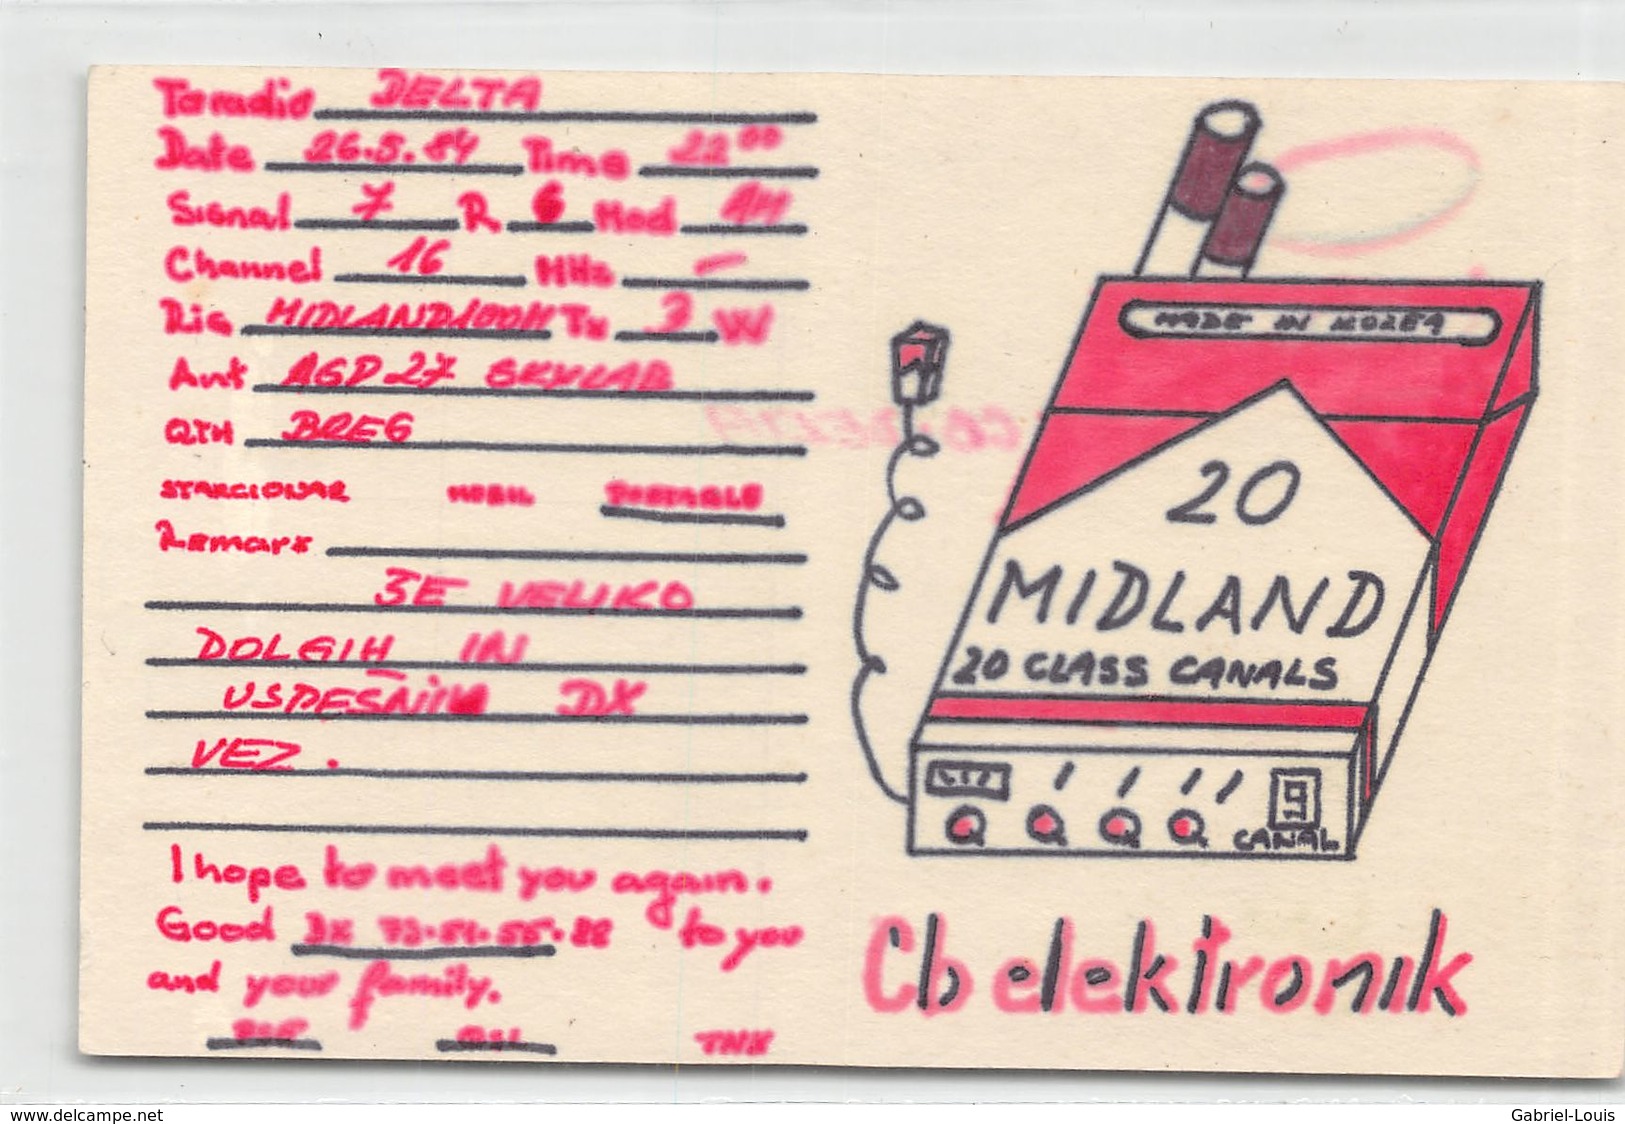 To radio DELTA
Date 26.5.84 Time 22⁰⁰
Signal 7 R 6 Mod AM
Channel 16 MHz –
Rig MIDLAND 100M Tx 3 W
Ant AGP 27 SKYLAB
QTH BREG
STARCIONAR MOBIL PORTABLE
Remark
ŠE VELIKO
DOLGIH IN
USPEŠNIH DX
VEZ.
I hope to meet you again.
Good DX 73-51-55-88 to you
and your family.
PSE QSL TNX
MADE IN KOREA
20
MIDLAND
20 CLASS CANALS
9
CANAL
Cb elektronik
www.delcampe.net
Gabriel-Louis